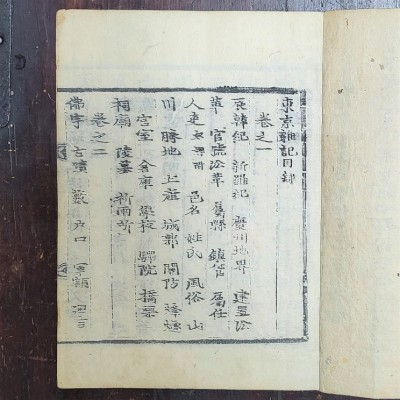 東京雜記目錄
卷之一
辰韓紀 新羅紀 慶州地界 建置沿
革 官號沿革 屬縣 鎮管 屬任
人吏 邑名 姓氏 風俗 山
川 勝地 土産 城郭 關防 烽燧
宮室 倉庫 學校 驛院 橋梁
祠廟 陵墓 祈雨所
卷之二
佛宇 古蹟 藪 戶口 軍額